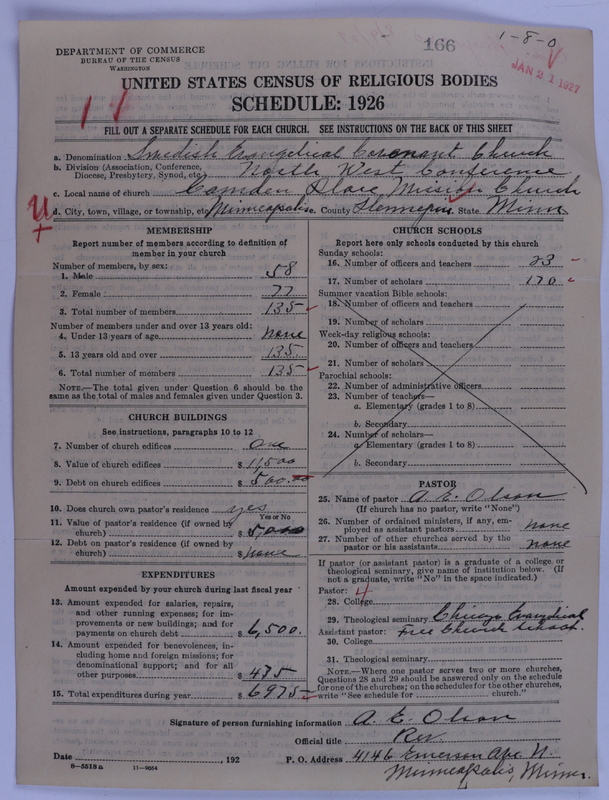 166
1-8-0
JAN 21 1927
DEPARTMENT OF COMMERCE
BUREAU OF THE CENSUS
WASHINGTON
UNITED STATES CENSUS OF RELIGIOUS BODIES
SCHEDULE: 1926
FILL OUT A SEPARATE SCHEDULE FOR EACH CHURCH. SEE INSTRUCTIONS ON THE BACK OF THIS SHEET
a. Denomination Swedish Evangelical Covenant Church
b. Division (Association, Conference, Diocese, Presbytery, Synod, etc. North West Conference
c. Local name of church Camden Place Mission Church
d. City, town, village, or township, etc. Minneapolis e. County Hennepin State Minn
MEMBERSHIP
Report number of members according to definition of
member in your church
Number of members, by sex:
1. Male 58
2. Female 77
3. Total number of members 135
Number of members under and over 13 years old:
4. Under 13 years of age none
5. 13 years old and over 135
6. Total number of members 135
NOTE.—The total given under Question 6 should be
same as the total of males and females given under Question 3.
CHURCH BUILDINGS
See instructions, paragraphs 10 to 12
7. Number of church edifices one
8. Value of church edifices $ 11,500
9. Debt on church edifices $ 500.00
10. Does church own pastor's residence? yes
Yes or No
11. Value of pastor's residence (if owned by
church) $ 5,000
12. Debt on pastor's residence (if owned by
church) $ none
EXPENDITURES
Amount expended by your church during last fiscal year
13. Amount expended for salaries, repairs,
and other running expenses; for im-
provements or new buildings; and for
payments on church debt $ 6,500.
14. Amount expended for benevolences, in-
cluding home and foreign missions; for
denominational support; and for all
other purposes $ 475
15. Total expenditures during year $ 6975
CHURCH SCHOOLS
Report here only schools conducted by this church
Sunday schools:
16. Number of officers and teachers 23
17. Number of scholars 170
Summer vacation Bible schools:
18. Number of officers and teachers
19. Number of scholars
Week-day religious schools:
20. Number of officers and teachers
21. Number of scholars
Parochial schools:
22. Number of administrative officers
23. Number of teachers—
a. Elementary (grades 1 to 8)
b. Secondary
24. Number of scholars—
a. Elementary (grades 1 to 8)
b. Secondary
PASTOR
25. Name of pastor A. E. Olson
(If church has no pastor, write "None")
26. Number of ordained ministers, if any, em-
ployed as assistant pastors none
27. Number of other churches served by the
pastor or his assistants none
If pastor (or assistant pastor) is a graduate of a college or
theological seminary, give name of institution below. (If
not a graduate, write "No" in the space indicated.)
Pastor: 4
28. College
29. Theological seminary Chicago Evangelical
Assistant pastor: Free Church School.
30. College
31. Theological seminary
NOTE.—Where one pastor serves two or more churches,
Questions 28 and 29 should be answered only on the schedule
for one of the churches; on the schedules for the other churches,
write "See schedule for church."
Signature of person furnishing information A. E. Olson
Official title Rev.
Date , 192 P. O. Address 4146 Emerson Ave. N.
Minneapolis, Minn.
8—5518 a 11—9664